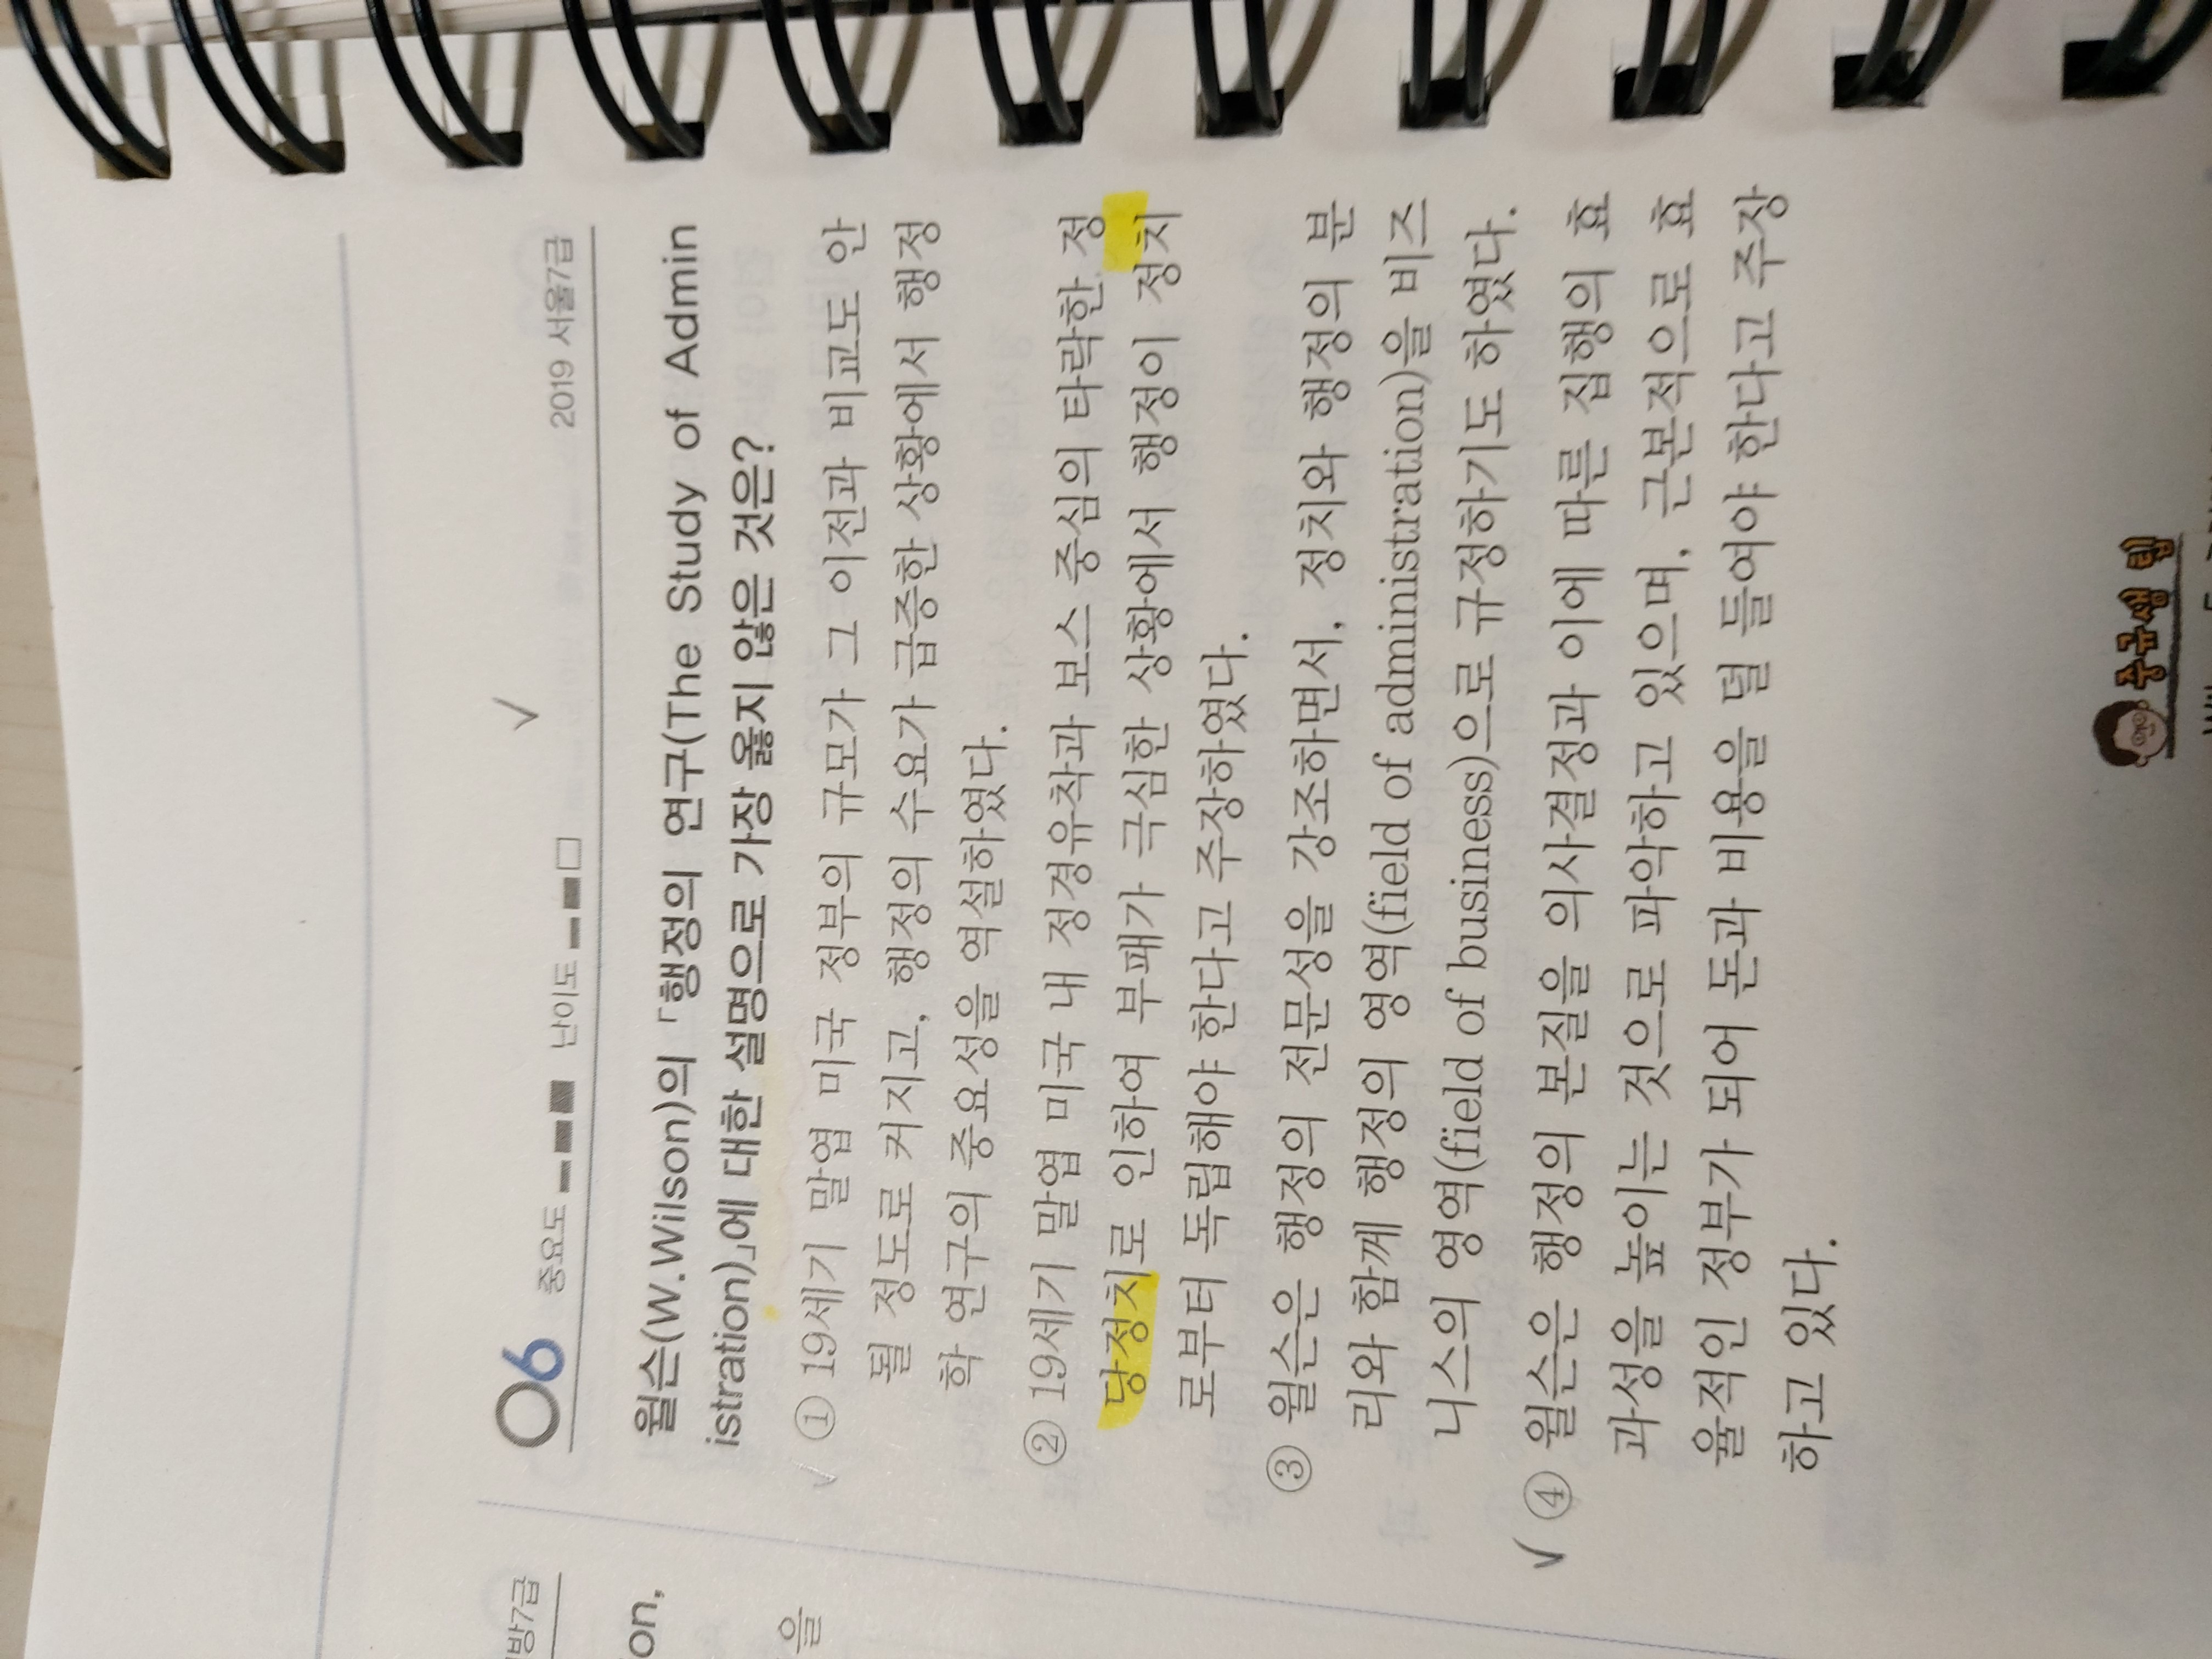 06 중요도 난이도 2019 서울7급
윌슨(W.Wilson)의 「행정의 연구(The Study of Admin
istration)」에 대한 설명으로 가장 옳지 않은 것은?
① 19세기 말엽 미국 정부의 규모가 그 이전과 비교도 안
될 정도로 커지고, 행정의 수요가 급증한 상황에서 행정
학 연구의 중요성을 역설하였다.
② 19세기 말엽 미국 내 정경유착과 보스 중심의 타락한 정
당정치로 인하여 부패가 극심한 상황에서 행정이 정치
로부터 독립해야 한다고 주장하였다.
③ 윌슨은 행정의 전문성을 강조하면서, 정치와 행정의 분
리와 함께 행정의 영역(field of administration)을 비즈
니스의 영역(field of business)으로 규정하기도 하였다.
④ 윌슨은 행정의 본질을 의사결정과 이에 따른 집행의 효
과성을 높이는 것으로 파악하고 있으며, 근본적으로 효
율적인 정부가 되어 돈과 비용을 덜 들여야 한다고 주장
하고 있다.
방7급
on,
을
중규쌤 팁